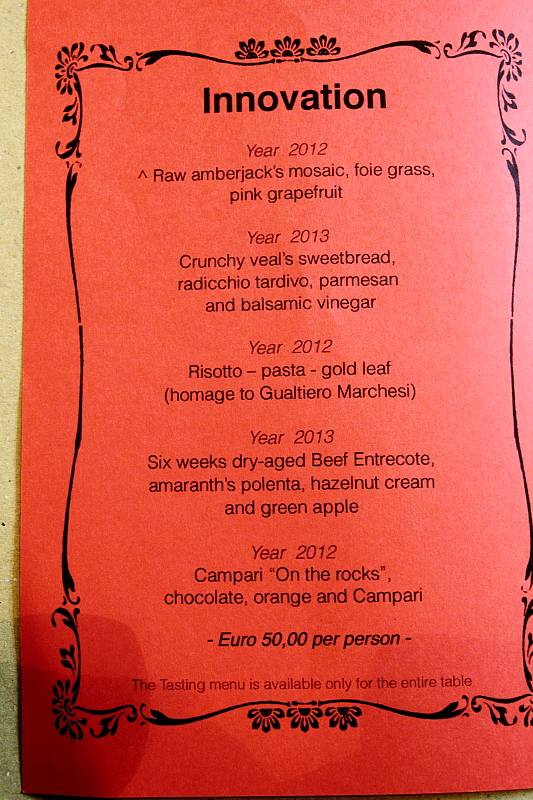 Innovation
Year 2012
^ Raw amberjack's mosaic, foie grass,
pink grapefruit
Year 2013
Crunchy veal's sweetbread,
radicchio tardivo, parmesan
and balsamic vinegar
Year 2012
Risotto – pasta - gold leaf
(homage to Gualtiero Marchesi)
Year 2013
Six weeks dry-aged Beef Entrecote,
amaranth's polenta, hazelnut cream
and green apple
Year 2012
Campari “On the rocks”,
chocolate, orange and Campari
- Euro 50,00 per person -
The Tasting menu is available only for the entire table